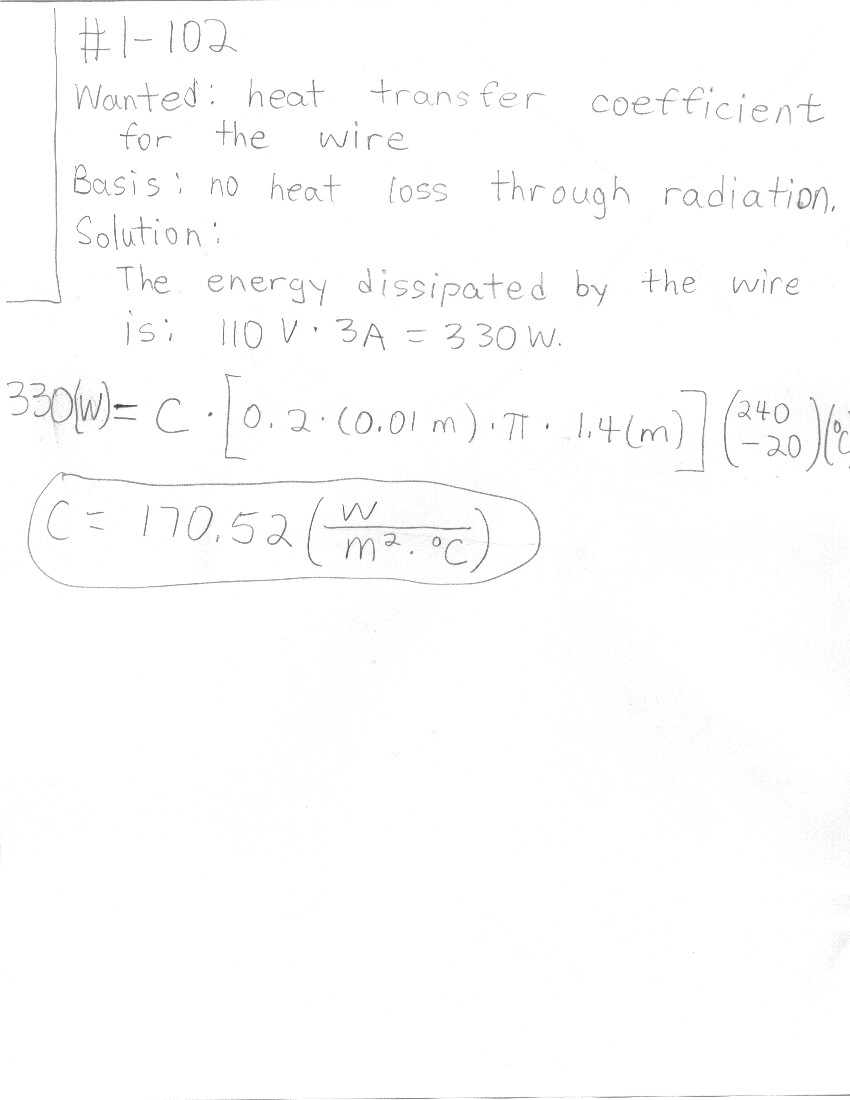 #1-102
Wanted: heat transfer coefficient
for the wire
Basis: no heat loss through radiation.
Solution:
The energy dissipated by the wire
is: 110 V · 3A = 330 W.
330(W) = C · [0.2 · (0.01 m) · π · 1.4(m)] (240 - 20)(°C
C = 170.52 (W / m² · °C)